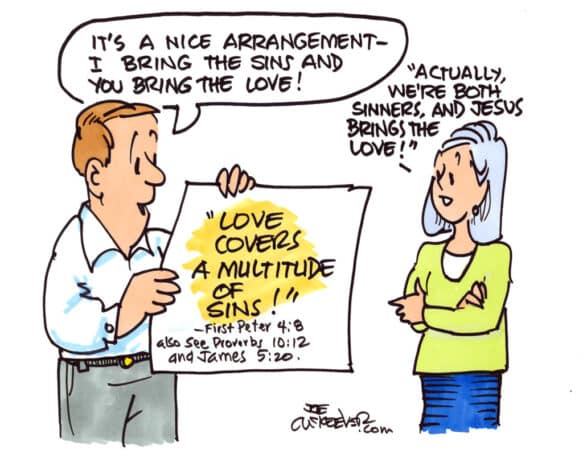 IT'S A NICE ARRANGEMENT–
I BRING THE SINS AND
YOU BRING THE LOVE!
"ACTUALLY,
WE'RE BOTH
SINNERS, AND JESUS
BRINGS THE
LOVE!"
"LOVE
COVERS
A MULTITUDE
OF
SINS!"
–First Peter 4:8
also see Proverbs 10:12
and James 5:20.
JOE
.com